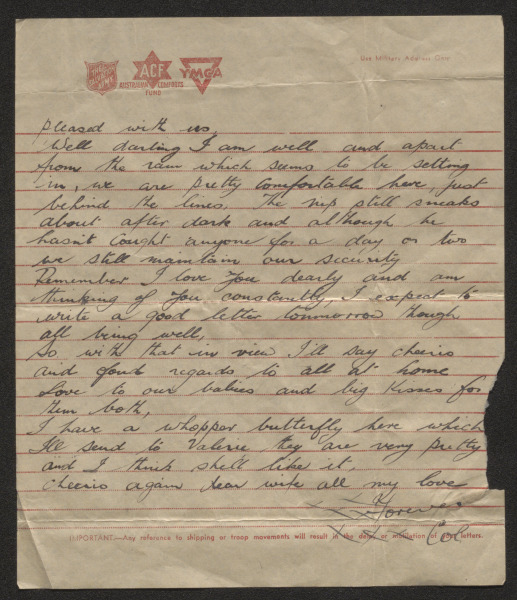 Use Military Address Only
THE SALVATION ARMY
ACF
AUSTRALIAN COMFORTS
FUND
YMCA
pleased with us,
Well darling I am well and apart
from the rain which seems to be setting
in, we are pretty comfortable here, just
behind the lines. The nip still sneaks
about after dark and although he
hasn't caught anyone for a day or two
we still maintain our security
Remember I love you dearly and am
thinking of you constantly, I expect to
write a good letter tommorrow though
all being well,
So with that in view I'll say cheerio
and regards to all at home
Love to our babies and big kisses for
them both,
I have a whoppar butterfly here which
I'll send to Valerie they are very pretty
and I think shell like it,
Cheerio again dear wife all my love
Forever
Col
IMPORTANT.—Any reference to shipping or troop movements will result in the delay or mutilation of your letters.